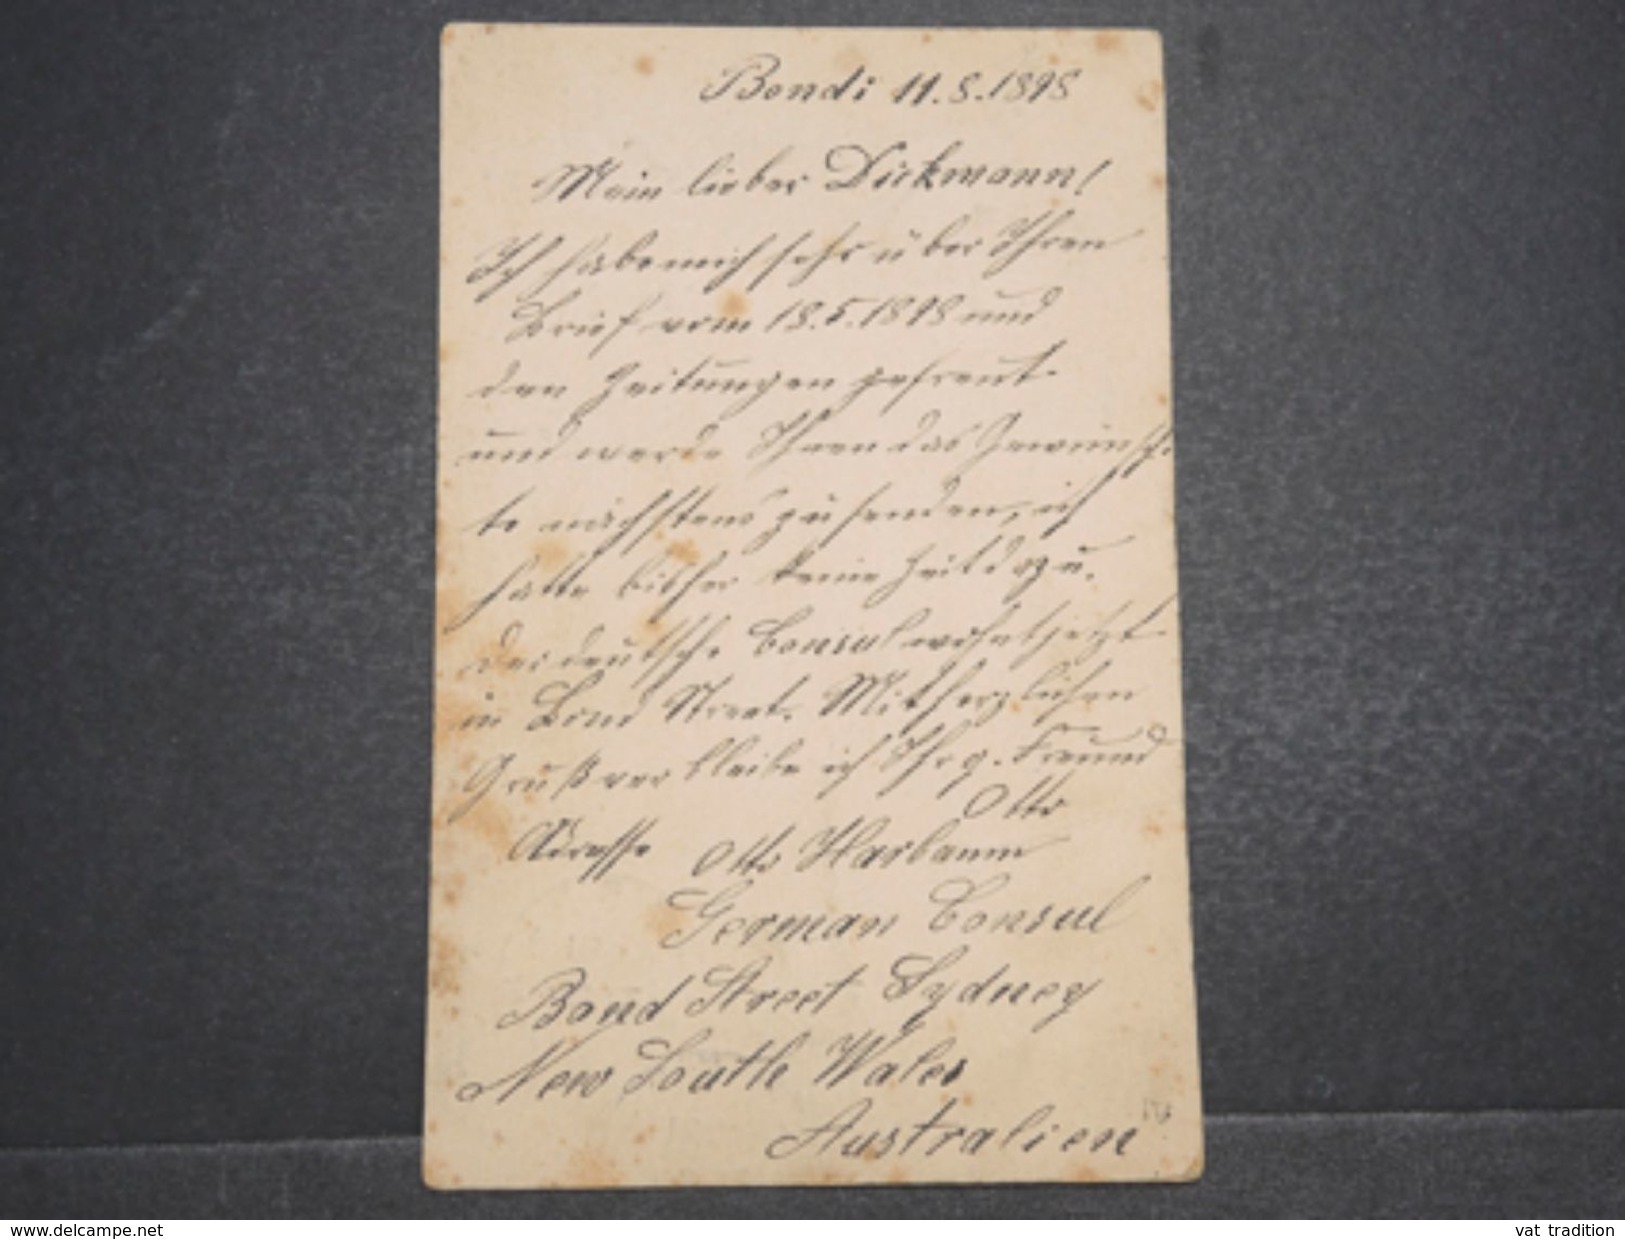 Bondi 11.8.1898
Mein lieber Dickmann!
Ich habe mich sehr über Ihren
Brief vom 18.5.1898 und
den Zeitungen gefreut
und werde Ihnen das Gewünsch-
te nächstens zusenden, ich
hatte bisher keine Zeit dazu.
Der deutsche Consul wohnt jetzt
in Bond Street. Mit herzlichen
Gruß verbleibe ich Ihr g. Freund
Otto
Adresse Otto Harbaum
German Consul
Bond Street Sydney
New South Wales
Australien
www.delcampe.net
vat tradition